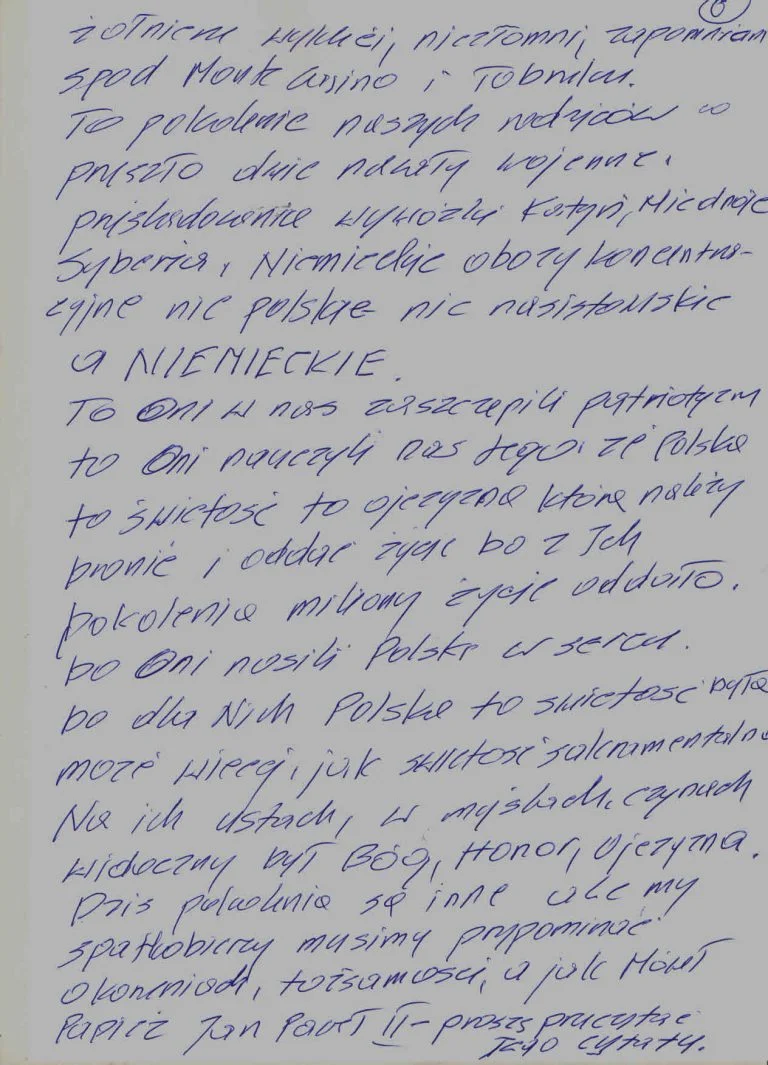 6
żołnierze wyklęci, niezłomni, zapomniani
spod Monte Cassino i Tobruku.
To pokolenie naszych rodziców co
przeszło dwie nawały wojenne,
prześladowania wywózki Katyń, Miednoje
Syberia, Niemieckie obozy koncentra-
cyjne nie polskie nie nasistowskie
a NIEMIECKIE.
To Oni w nas zaszczepili patriotyzm
to Oni nauczyli nas tego, że Polska
to świętość to ojczyzna którą należy
bronić i oddać życie bo z Ich
pokolenia miliony życie oddało.
bo Oni nosili Polskę w sercu.
bo dla Nich Polska to świętość była
może więcej, jak świętość sakramentalna
Na ich ustach, w myślach, czynach
widoczny był Bóg, Honor, Ojczyzna.
Dziś pokolenia są inne ale my
spatkobiercy musimy przypominać
o korzeniach, tożsamości, a jak Mówił
Papież Jan Paweł II - proszę przeczytać
Jego cytaty.